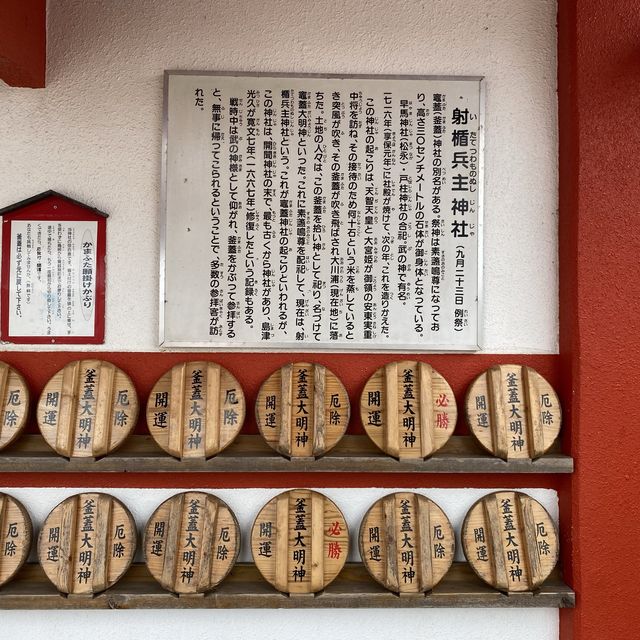 射楯兵主神社（九月二十三日 例祭）
いたてつわものぬしじんじゃ
竃蓋（釜蓋）神社の別名がある。祭神は素盞鳴尊になってお
り、高さ三〇センチメートルの石体が御身体となっている。
早馬神社（松永）・戸柱神社の合祀。武の神で有名。
一七一六年（享保元年）に社殿が焼けて、次の年、これを造りかえた。
この神社の起こりは、天智天皇と大宮姫が御領の安東実重
中将を訪ね、その接待のため何十石という米を蒸していると
き突風が吹き、その釜蓋が吹き飛ばされ大川浦（現在地）に落
ちた。土地の人々は、この釜蓋を拾い神として祀り、名づけて
竃蓋大明神といった。これに素盞鳴尊を配祀して、現在は、射
楯兵主神社という。これが竃蓋神社の起こりといわれるが、
この神社は、開聞神社の末で、最も古くから神社があり、島津
光久が寛文七年（一六六七年）修復したという記録もある。
戦時中は武の神様として仰がれ、釜蓋をかぶって参拝する
と、無事に帰ってこられるということで、多数の参拝客が訪
れた。
かまふた願掛けかぶり
釜蓋は必ず元に戻して下さい。
厄除
開運
釜蓋大明神
厄除
開運
釜蓋大明神
厄除
開運
釜蓋大明神
厄除
開運
釜蓋大明神
必勝
開運
釜蓋大明神
厄除
開運
厄除
開運
釜蓋大明神
厄除
開運
釜蓋大明神
厄除
開運
釜蓋大明神
必勝
開運
釜蓋大明神
厄除
開運
釜蓋大明神
厄除
開運